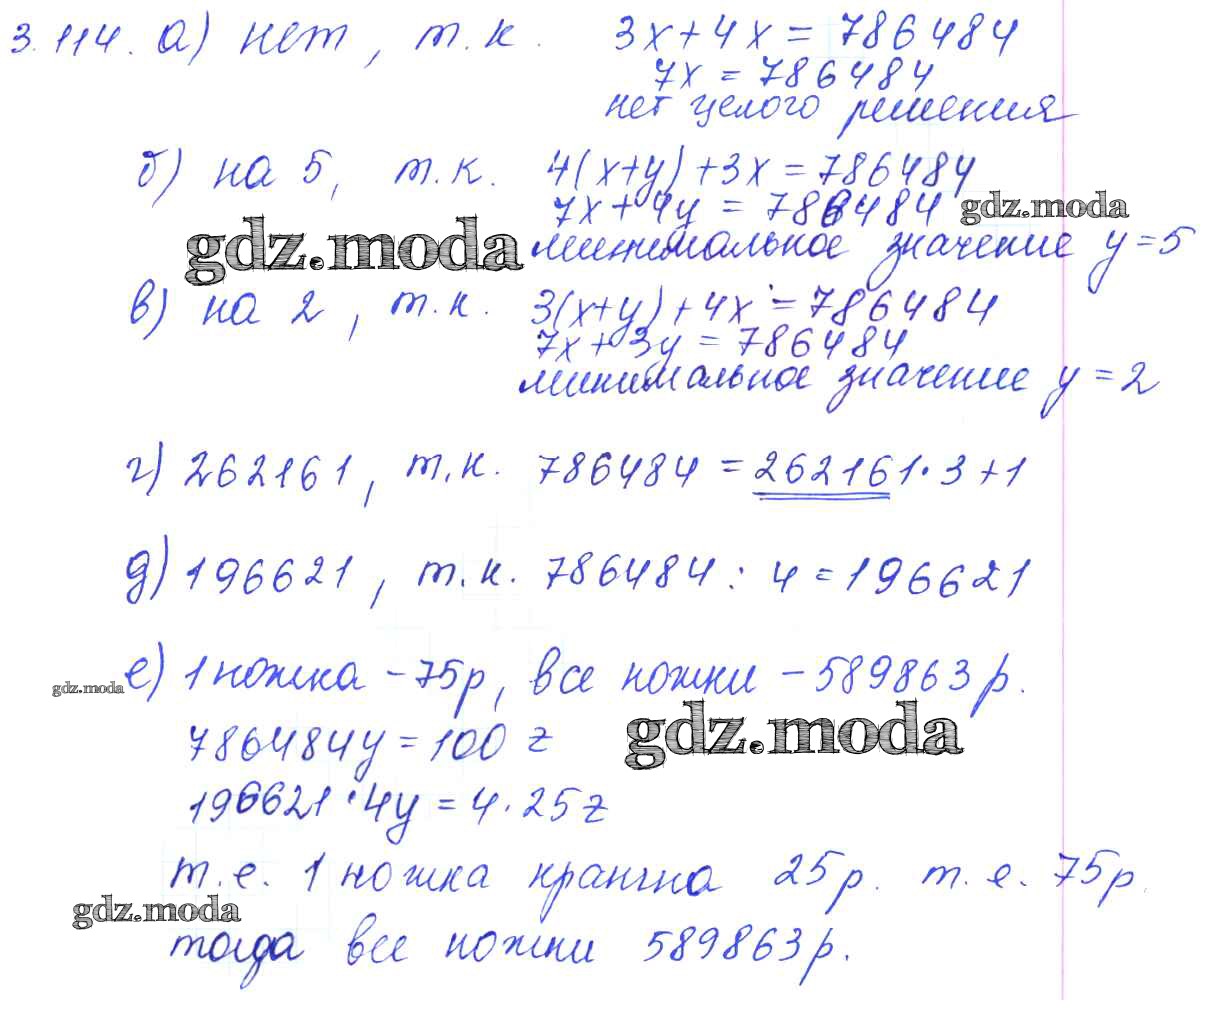 3.114. а) нет, т.к. 3x+4x=786484
7x=786484
нет целого решения
б) на 5, т.к. 4(x+y)+3x=786484
7x+4y=786484 gdz.moda
gdz.moda минимальное значение y=5
в) на 2, т.к. 3(x+y)+4x=786484
7x+3y=786484
минимальное значение y=2
г) 262161, т.к. 786484=262161·3+1
д) 196621, т.к. 786484:4=196621
gdz.moda е) 1 ножка – 75р, все ножки – 589863р.
786484y=100z gdz.moda
196621·4y=4·25z
т.е. 1 ножка кратна 25р. т.е. 75р.
gdz.moda
тогда все ножки 589863р.